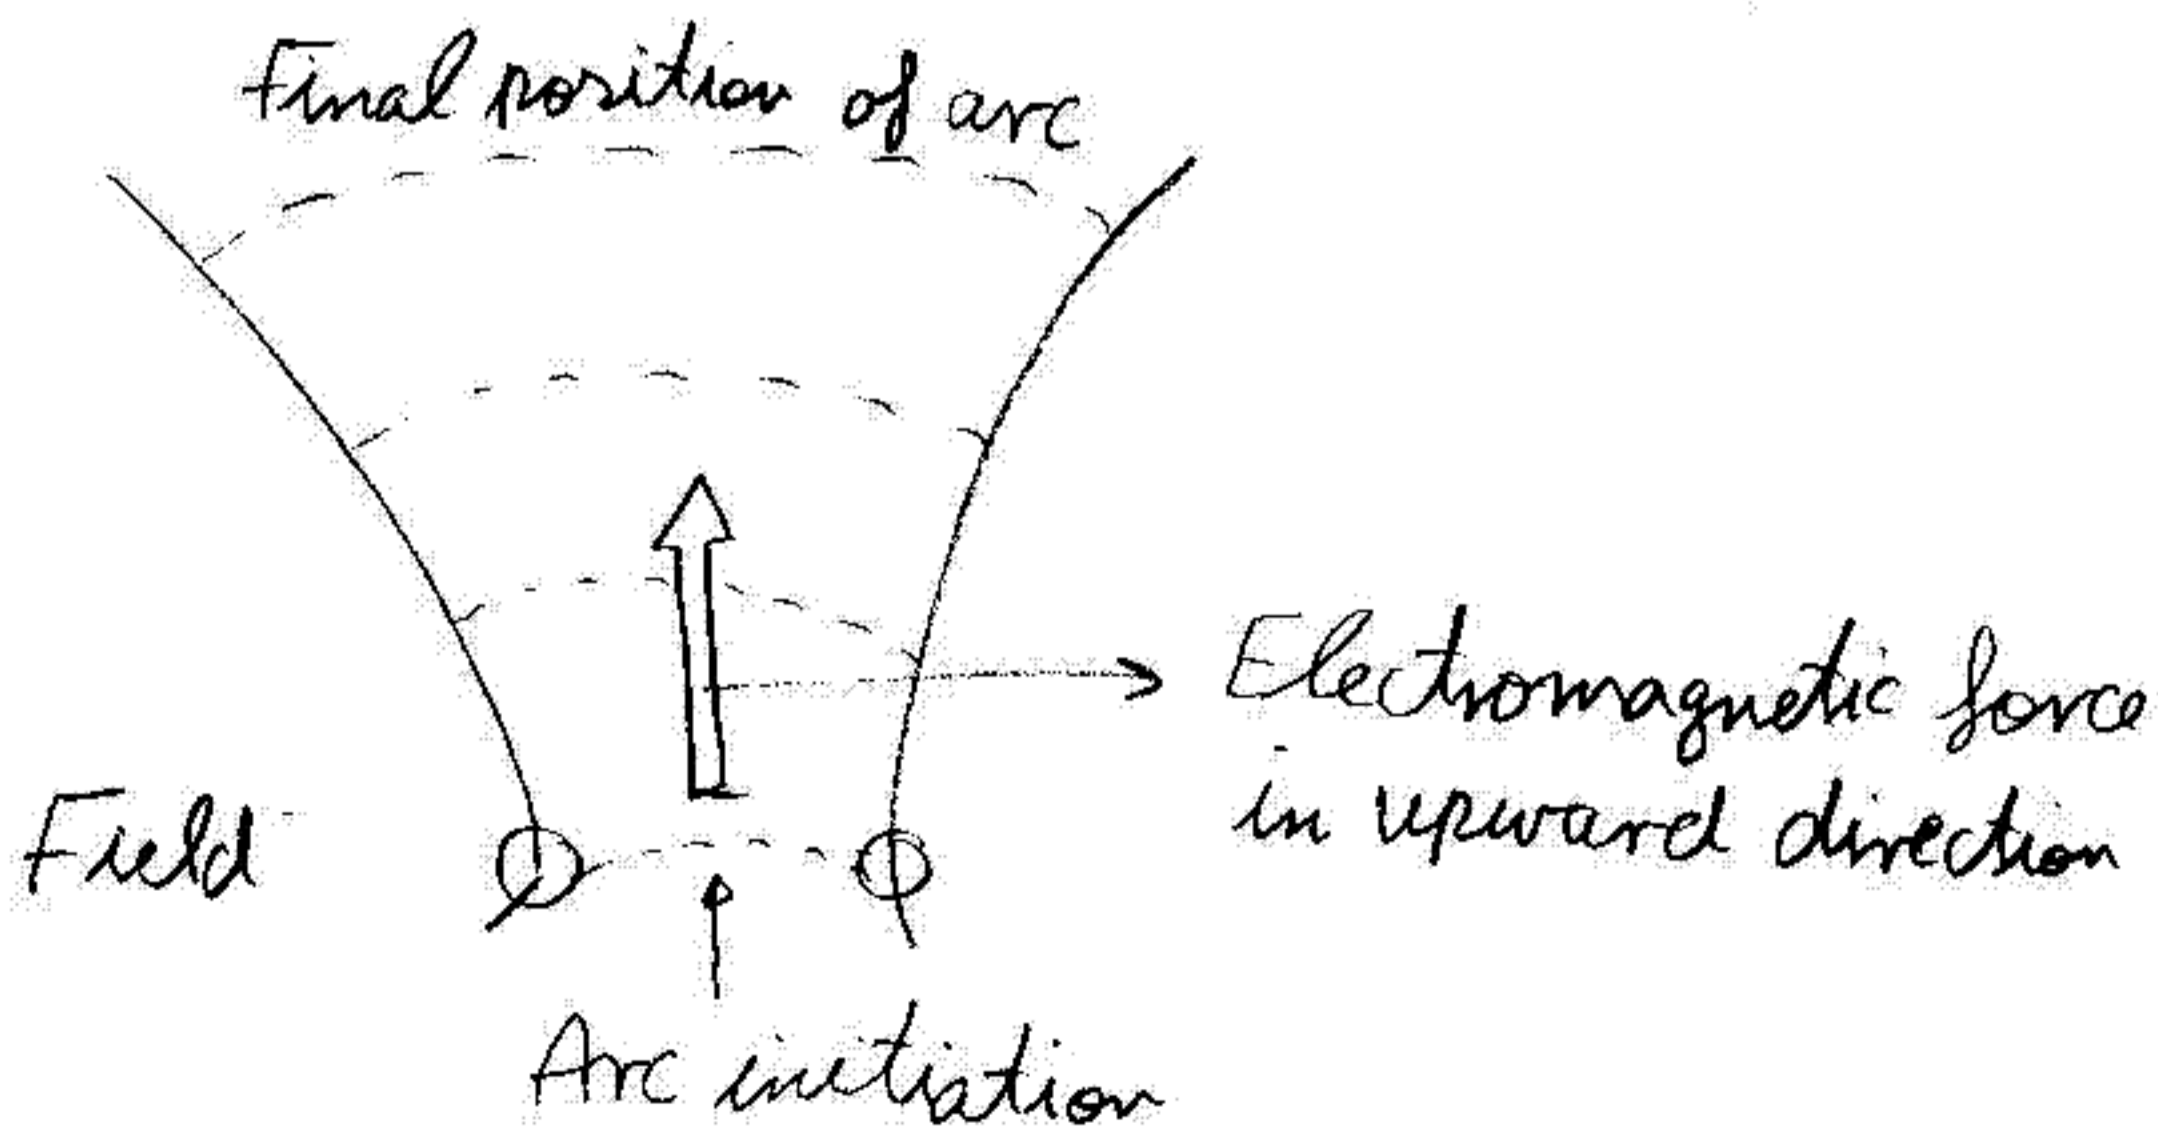 Final position of arc
Electromagnetic force
in upward direction
Field
Arc initiation